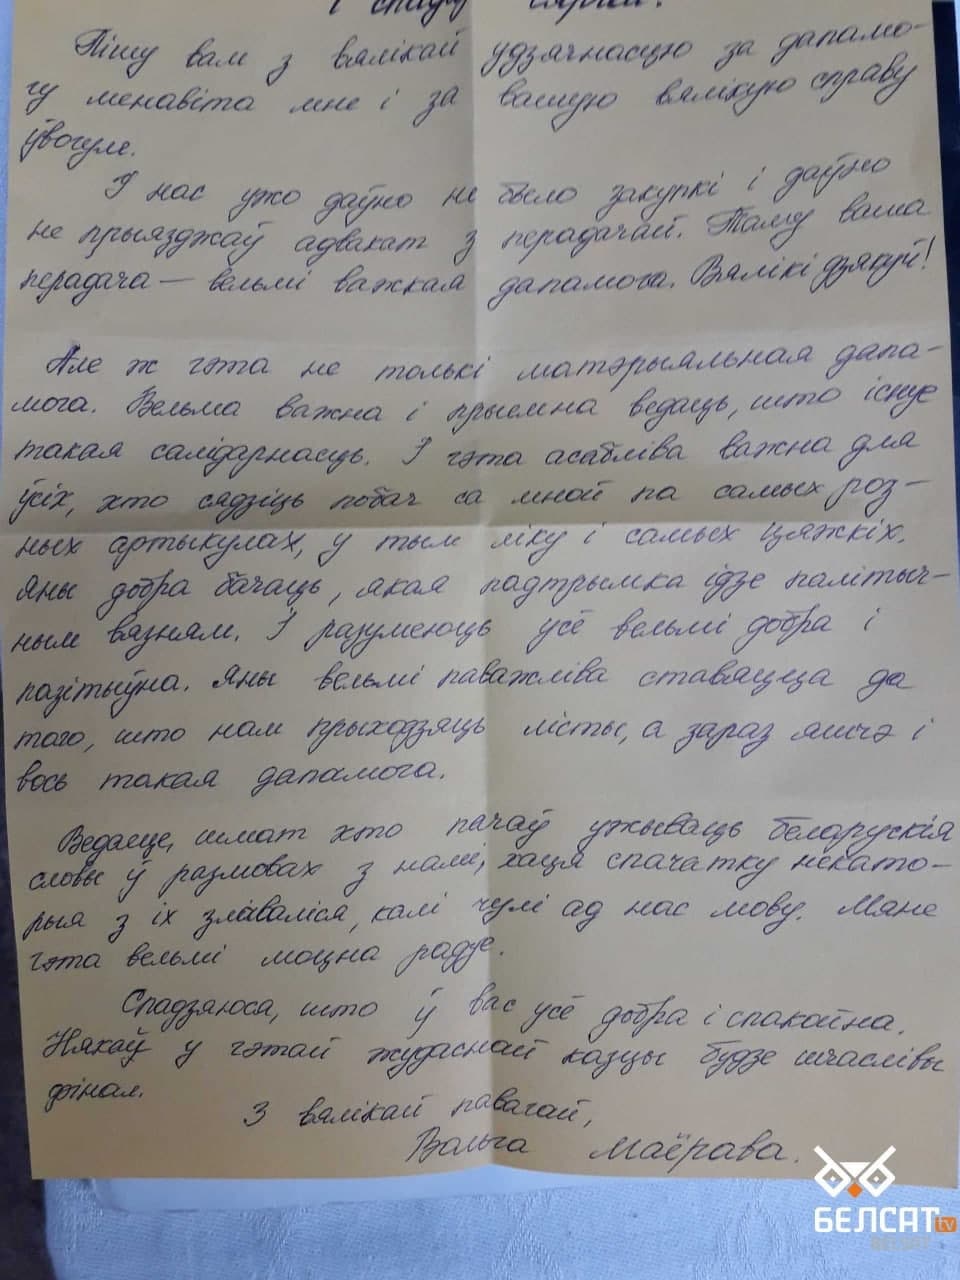 Пішу вам з вялікай удзячнасцю за дапамо-
гу менавіта мне і за вашую вялікую справу
ўвогуле.
У нас ужо даўно не было закупкі і даўно
не прыязджаў адвакат з перадачай. Таму ваша
перадача — вельмі важкая дапамога. Вялікі дзякуй!
Але ж гэта не толькі матэрыяльная дапа-
мога. Вельма важна і прыемна ведаць, што існуе
такая салідарнасць. І гэта асабліва важна для
ўсіх, хто сядзіць побач са мной па самых роз-
ных артыкулах, у тым ліку і самых цяжкіх.
Яны добра бачаць, якая падтрымка ідзе палітыч-
ным вязням. І разумеюць усё вельмі добра і
пазітыўна. Яны вельмі паважліва ставяцца да
того, што нам прыходзяць лісты, а зараз яшчэ і
вось такая дапамога.
Ведаеце, шмат хто пачаў ужываць беларускія
словы ў размовах з намі, хаця спачатку некато-
рыя з іх злаваліся, калі чулі ад нас мову. Мяне
гэта вельмі моцна радуе.
Спадзяюся, што ў вас усё добра і спакойна.
Няхай у гэтай жудаснай казцы будзе шчаслівы
фінал.
З вялікай павагай,
Вольга Маёрава.
БЕЛСАТ tv